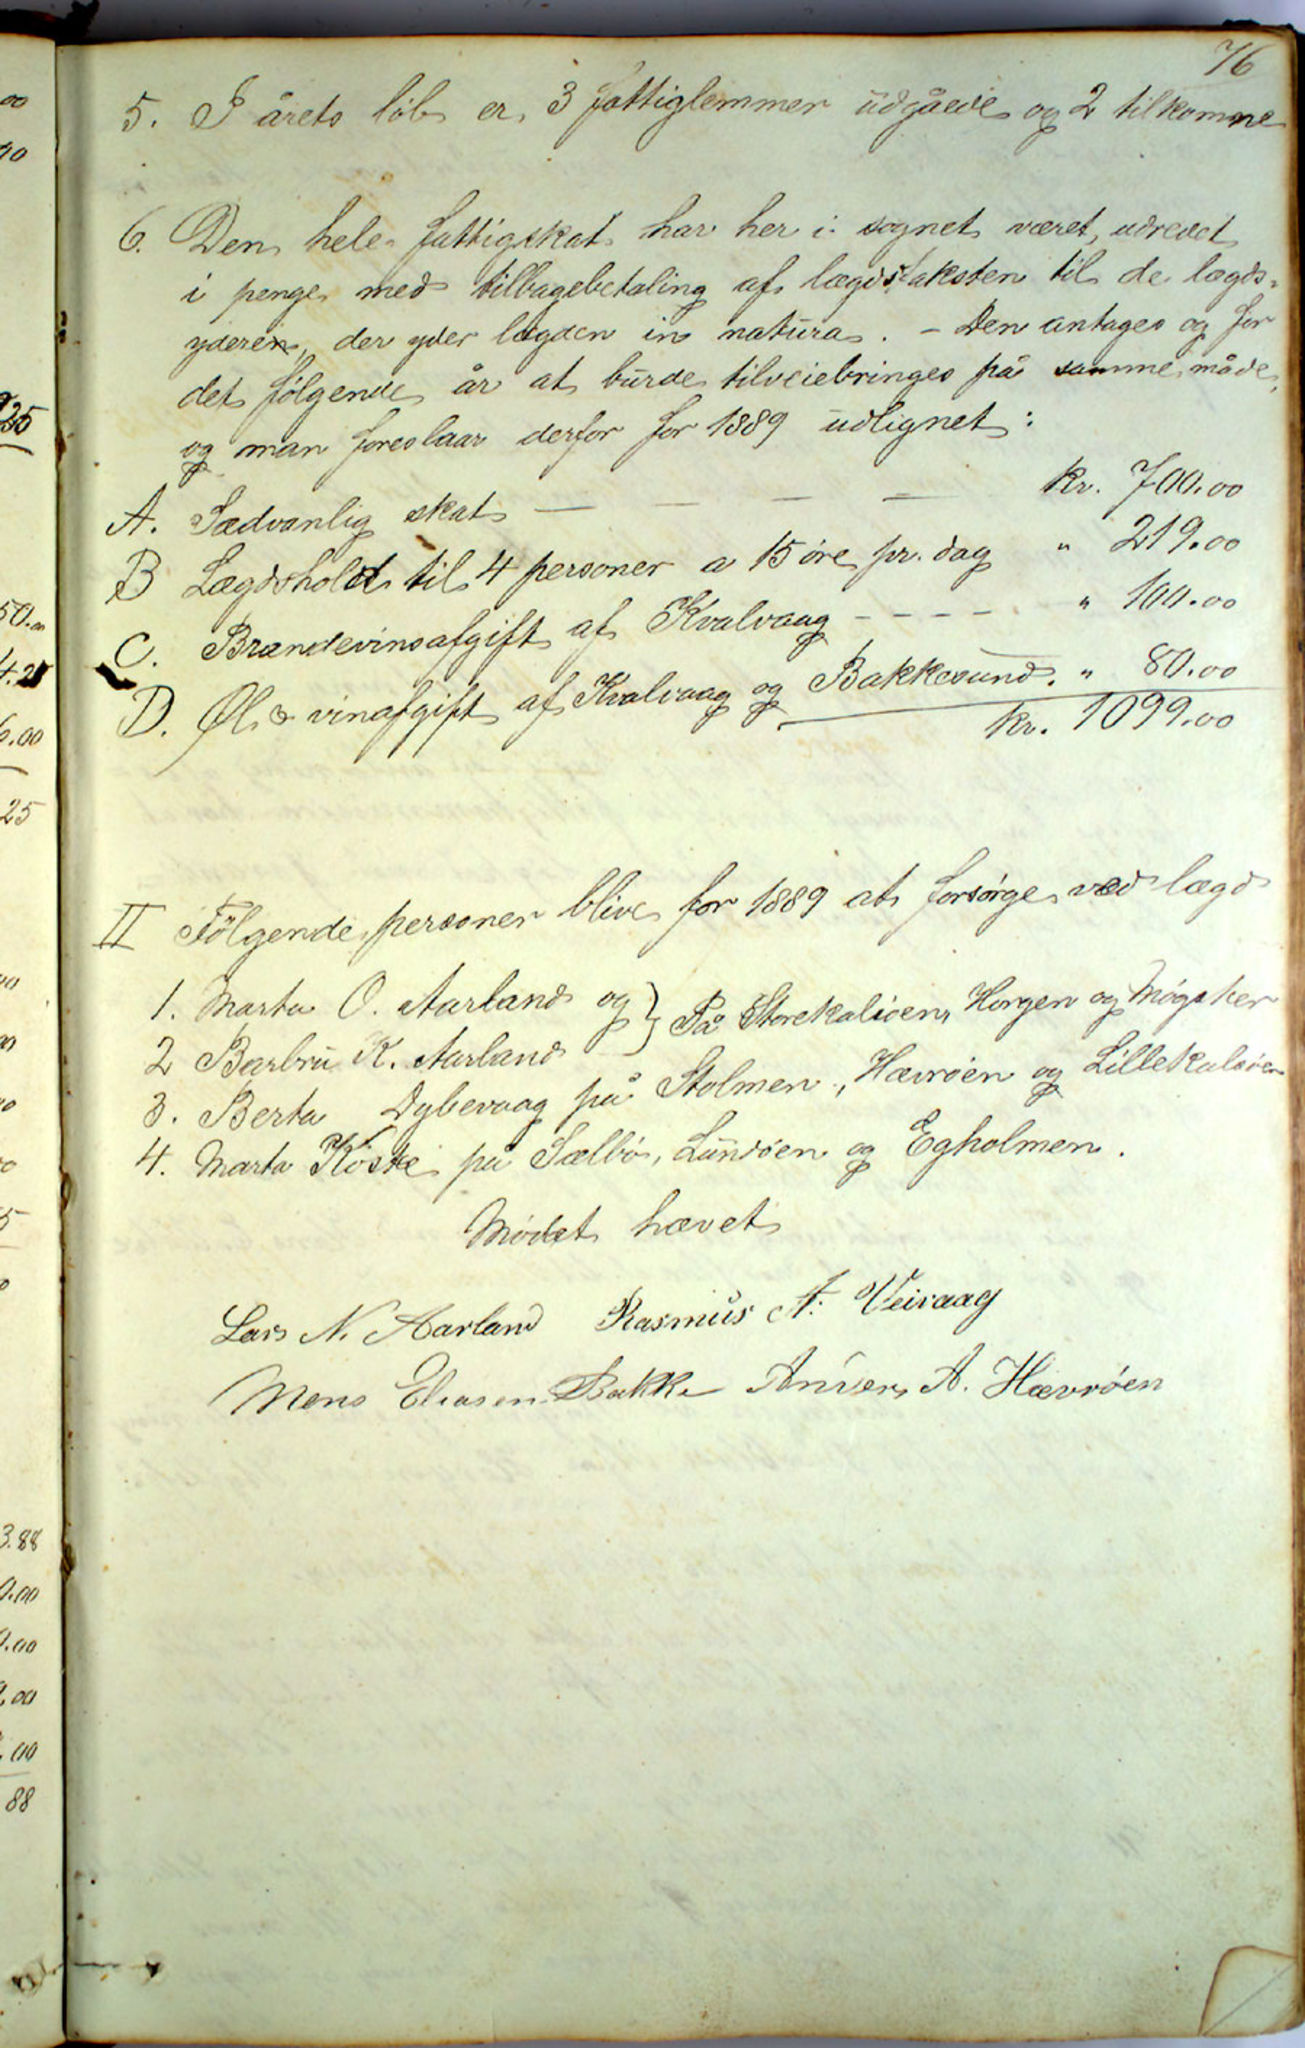 76
5. I årets løb er 3 fattiglemmer udgåede og 2 tilkomne
6. Den hele fattigskat har her i sognet været udredet
i penge med tilbagebetaling af lægdstaksten til de lægds-
yderen, der yder lægden in natura. – Den antages og for
det følgende år at burde tilveiebringes på samme måde,
og man foreslaar derfor for 1889 udlignet:
A. Sædvanlig skat — — — — kr. 700.00
B Lægdshold til 4 personer a 15 øre pr. dag " 219.00
C. Brændevinsafgift af Kvalvaag - - - - - " 100.00
D. Øl & vinafgift af Kvalvaag og Bakkesund. " 80.00
kr. 1099.00
II Følgende personer blive for 1889 at forsørge ved lægd
1. Marta O. Aarland og } På Storekalsøen, Horgen og Møgster
2 Barbru K. Aarland
3. Berta Dybevaag på Stolmen, Hævrøen og Lillekalsøen
4. Marta Røste på Sælbø, Lundøen og Egholmen.
Mødet hævet
Lars N. Aarland Rasmus A. Veivaag
Mons Eliasen Bakke Anders A. Hævrøen
25
50.00
4.2
6.00
25
3.88
0.00
0.00
0.00
.00
88